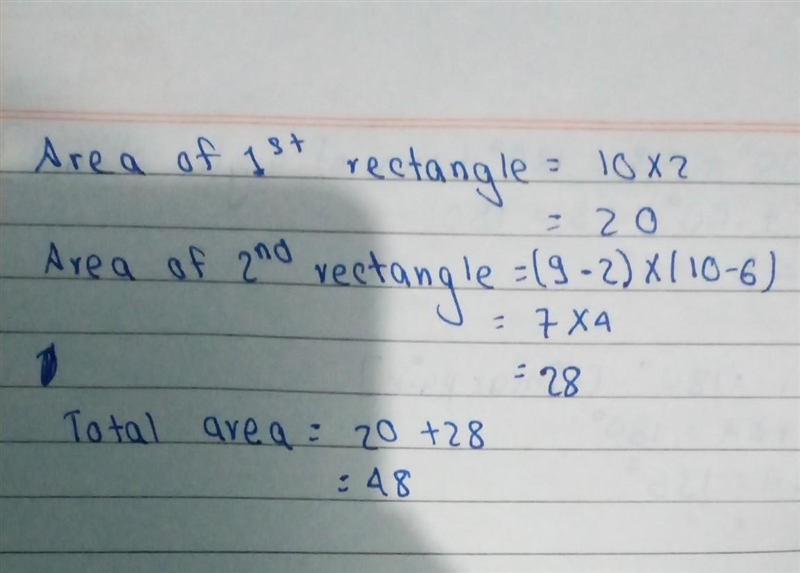 Area of 1st rectangle = 10 x 2
= 20
Area of 2nd rectangle = (9 - 2) x (10 - 6)
= 7 x 4
= 28
Total area = 20 + 28
= 48